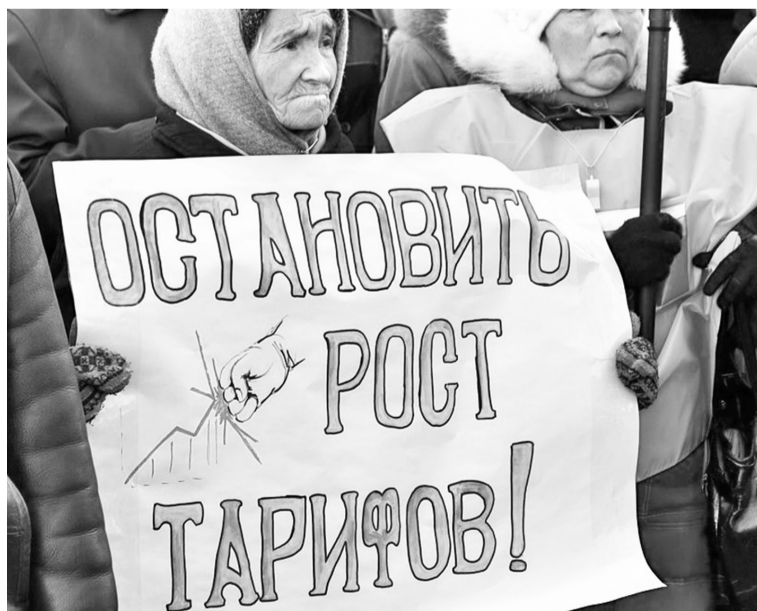 ОСТАНОВИТЬ
РОСТ
ТАРИФОВ!